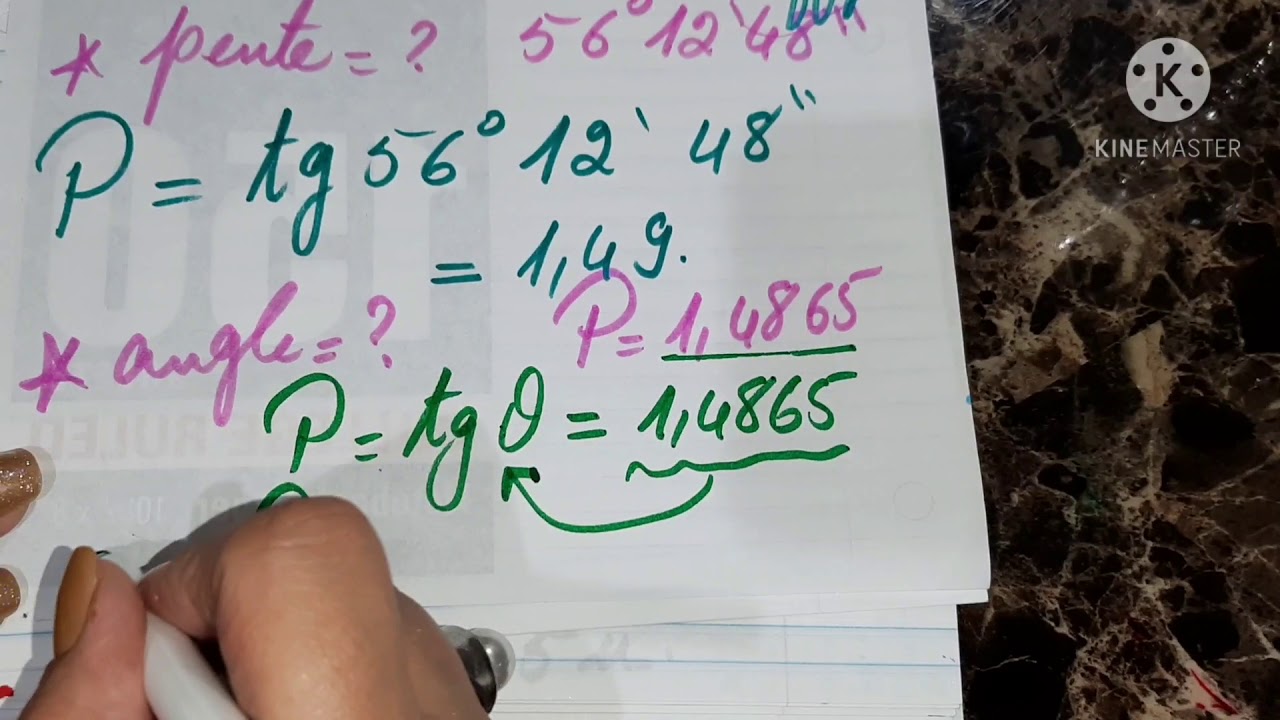 * pente = ? 56° 12' 48"
P = tg 56° 12' 48"
= 1,49.
* angle = ? P = 1,4865
P = tg θ = 1,4865
K
KINEMASTER